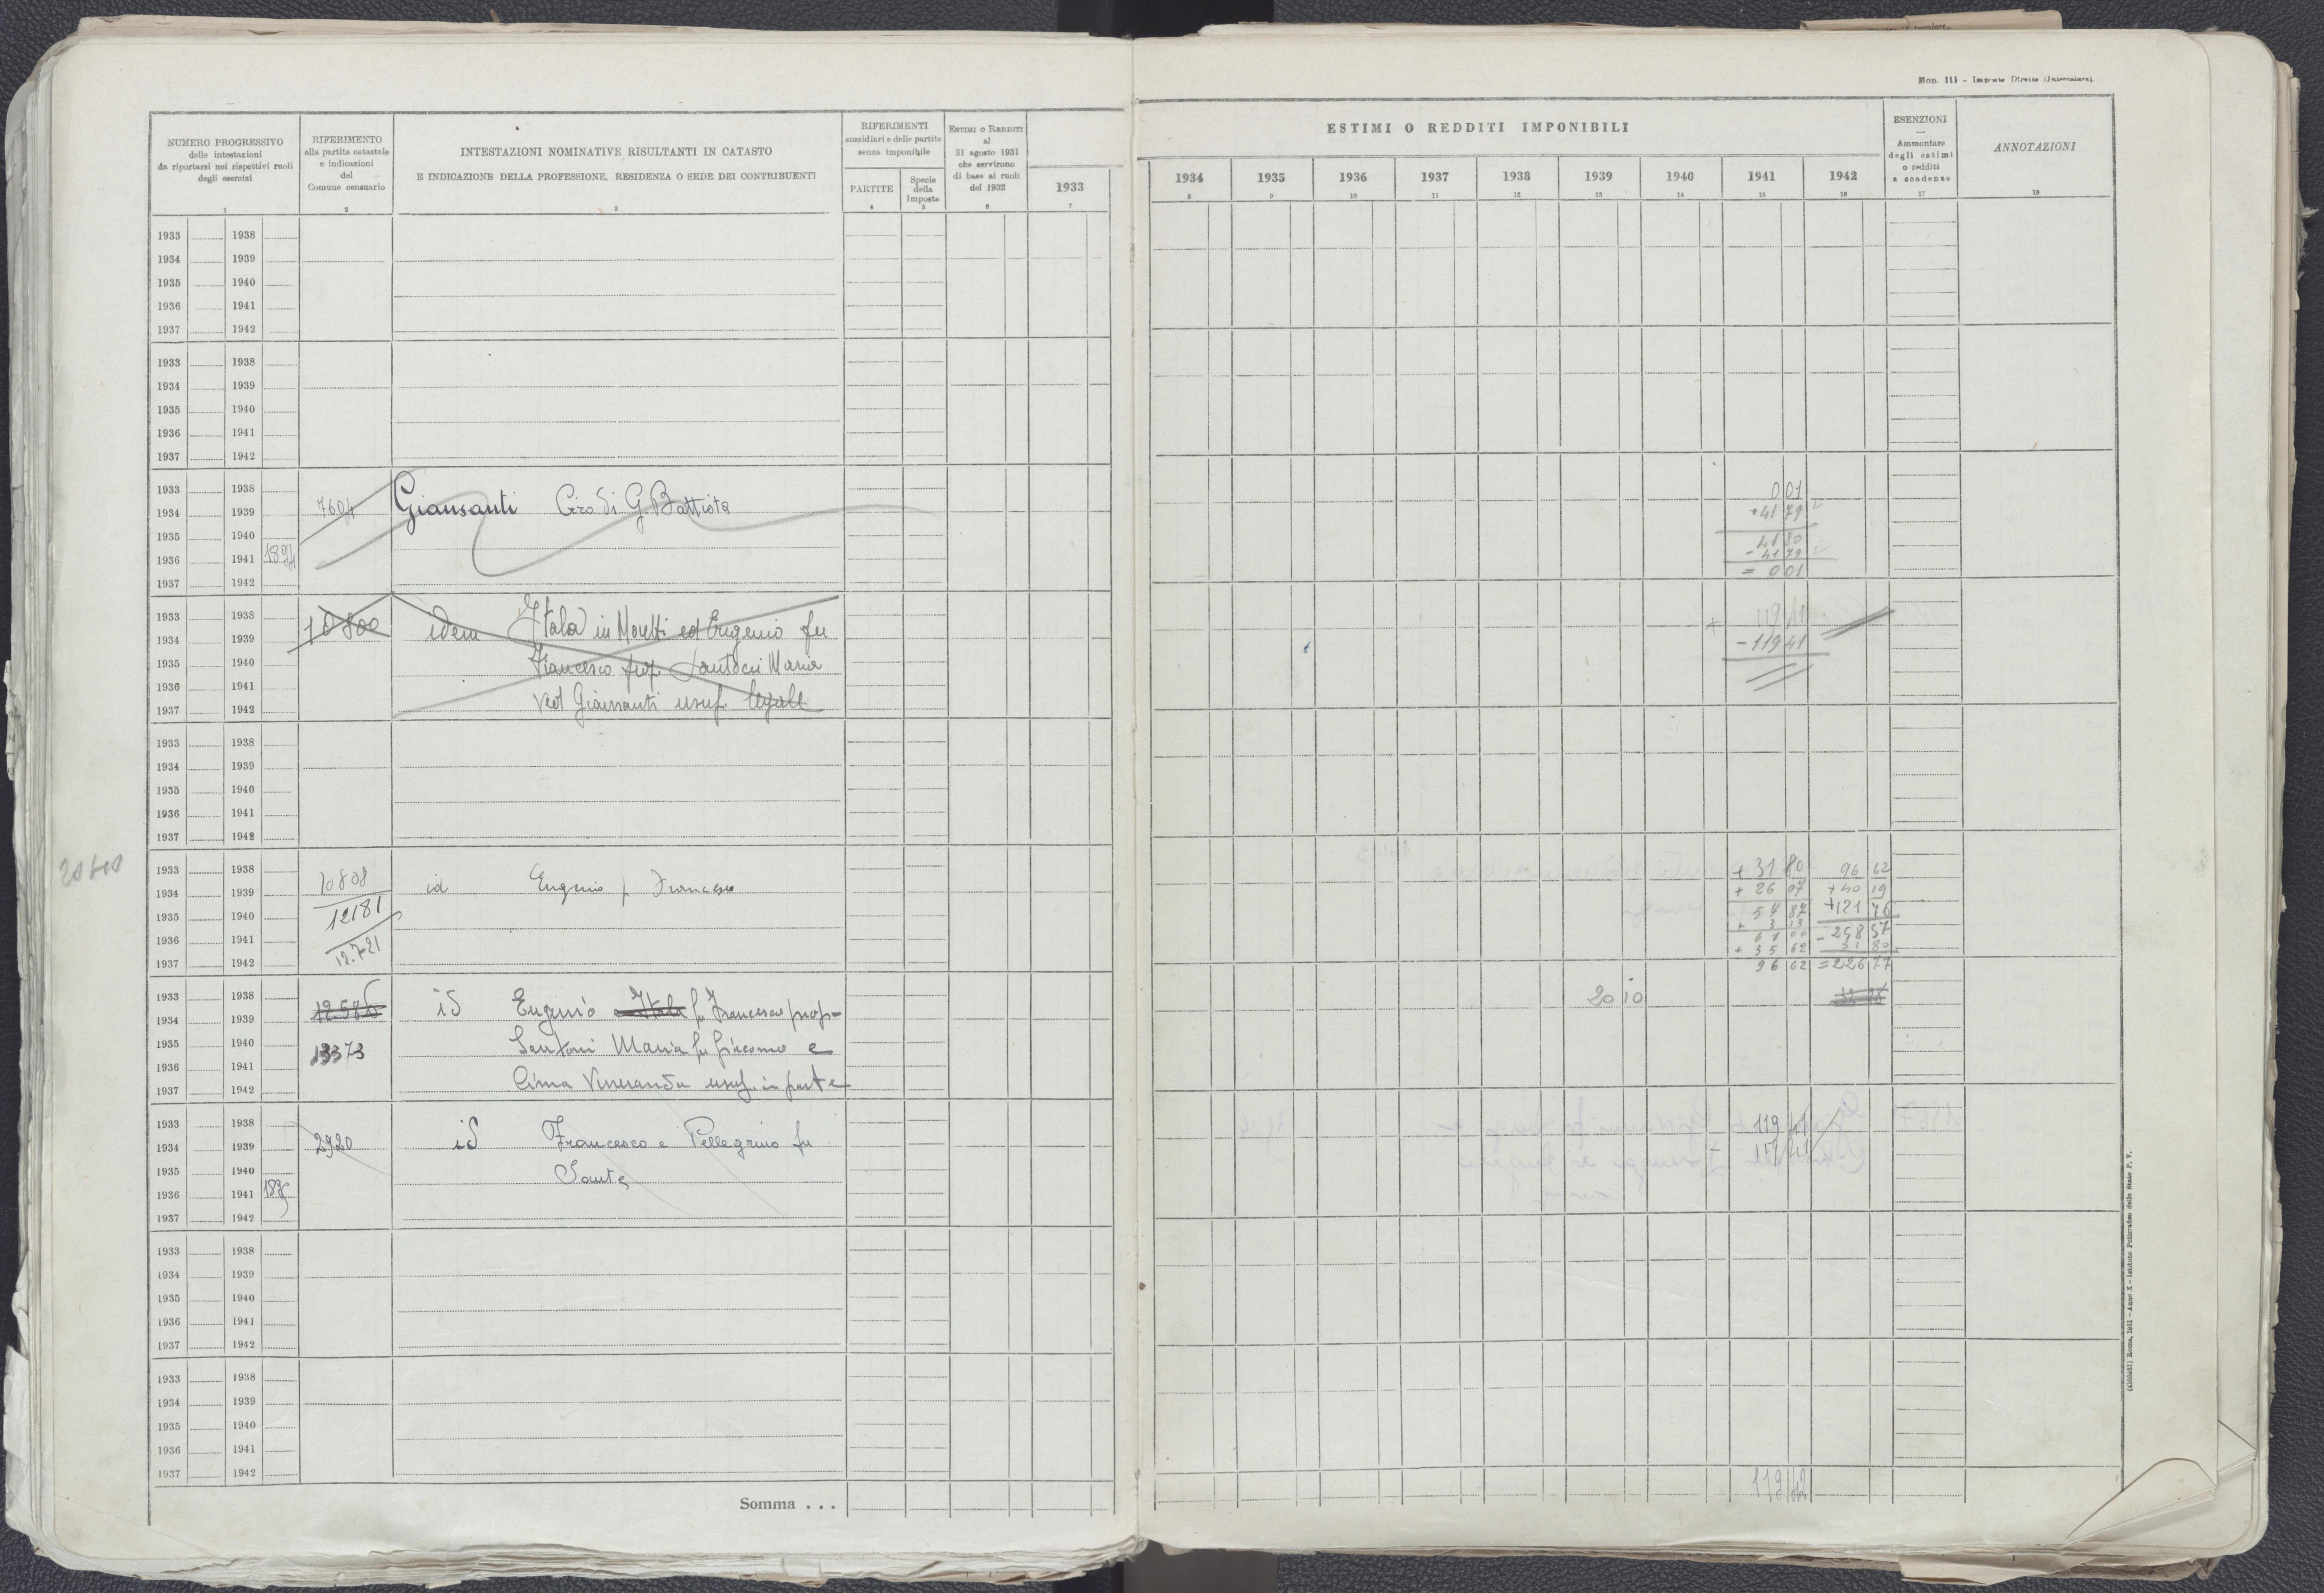 Mod. 111 - Imposte Dirette (Intercalare).
NUMERO PROGRESSIVO
delle intestazioni
da riportarsi nei rispettivi ruoli
degli esercizi
1
RIFERIMENTO
alla partita catastale
e indicazioni
del
Comune censuario
2
INTESTAZIONI NOMINATIVE RISULTANTI IN CATASTO
E INDICAZIONE DELLA PROFESSIONE, RESIDENZA O SEDE DEI CONTRIBUENTI
3
RIFERIMENTI
sussidiari e delle partite
senza imponibile
PARTITE
4
Specie
della
Imposta
5
ESTIMI O REDDITI
al
31 agosto 1931
che servirono
di base ai ruoli
del 1932
6
1933
7
ESTIMI O REDDITI IMPONIBILI
1934 1935 1936 1937 1938 1939 1940 1941 1942
8 9 10 11 12 13 14 15 16
ESENZIONI
Ammontare
degli estimi
o redditi
a scadenza
17
ANNOTAZIONI
18
1933 1938
1934 1939
1935 1940
1936 1941
1937 1942
1933 1938
1934 1939
1935 1940
1936 1941
1937 1942
1933 1938 0 01
1934 1939 7604 Giansanti Ciro di G. Battista + 41 79
1935 1940 41 80
1936 1941 1894 - 41 79
1937 1942 = 0 01
1933 1938 10800 idem Itala in Moretti ed Eugenio fu 119 41
1934 1939 - 119 41
1935 1940 Francesco prop. Maria
1936 1941
1937 1942 ved Giansanti usuf. legale
1933 1938
1934 1939
1935 1940
1936 1941
1937 1942
1933 1938 10808 + 31 80 96 62
1934 1939 id Eugenio f Francesco + 26 07 + 40 19
1935 1940 12181 57 87 + 121 76
1936 1941 12721 + 3 13 - 258 57
61 00 31 80
1937 1942 + 35 62
96 62 = 226 77
1933 1938 20 10
1934 1939 id Eugenio e Itala fu Francesco prop-
1935 1940 13373 Santoni Maria fu Giacomo e
1936 1941
1937 1942 Cima Veneranda usuf. in parte
1933 1938 - 119 41
1934 1939 2920 id Francesco e Pellegrino fu - 119 41
1935 1940 Sante
1936 1941 1895
1937 1942
1933 1938
1934 1939
1935 1940
1936 1941
1937 1942
1933 1938
1934 1939
1935 1940
1936 1941
1937 1942
Somma . . . 119 42